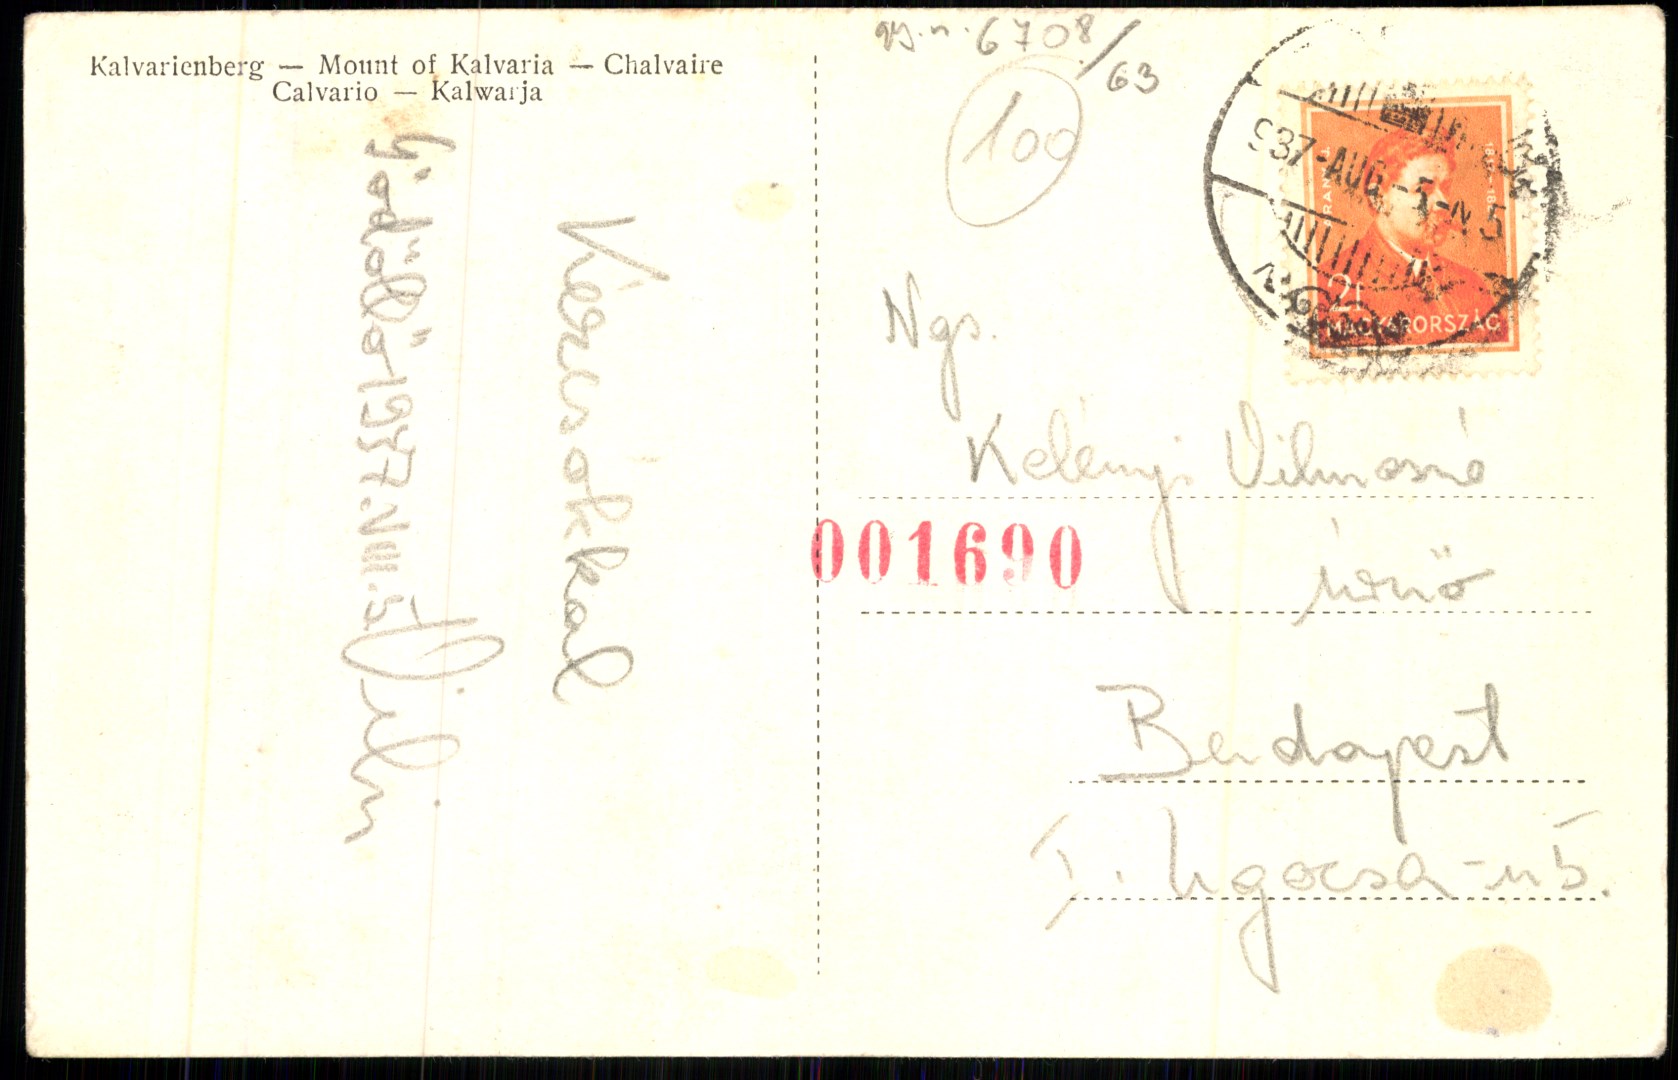 Kalvarienberg — Mount of Kalvaria — Chalvaire
Calvario — Kalwarja
Gödöllő 1937. VIII. 5
Kézcsókkal
Vili
gy. n. 6708/63
100
937-AUG.-5
2f
MAGYARORSZÁG
Ngs.
Kelényi Vilmosné
úrnő
001690
Budapest
I. Ugocsa-u 5.